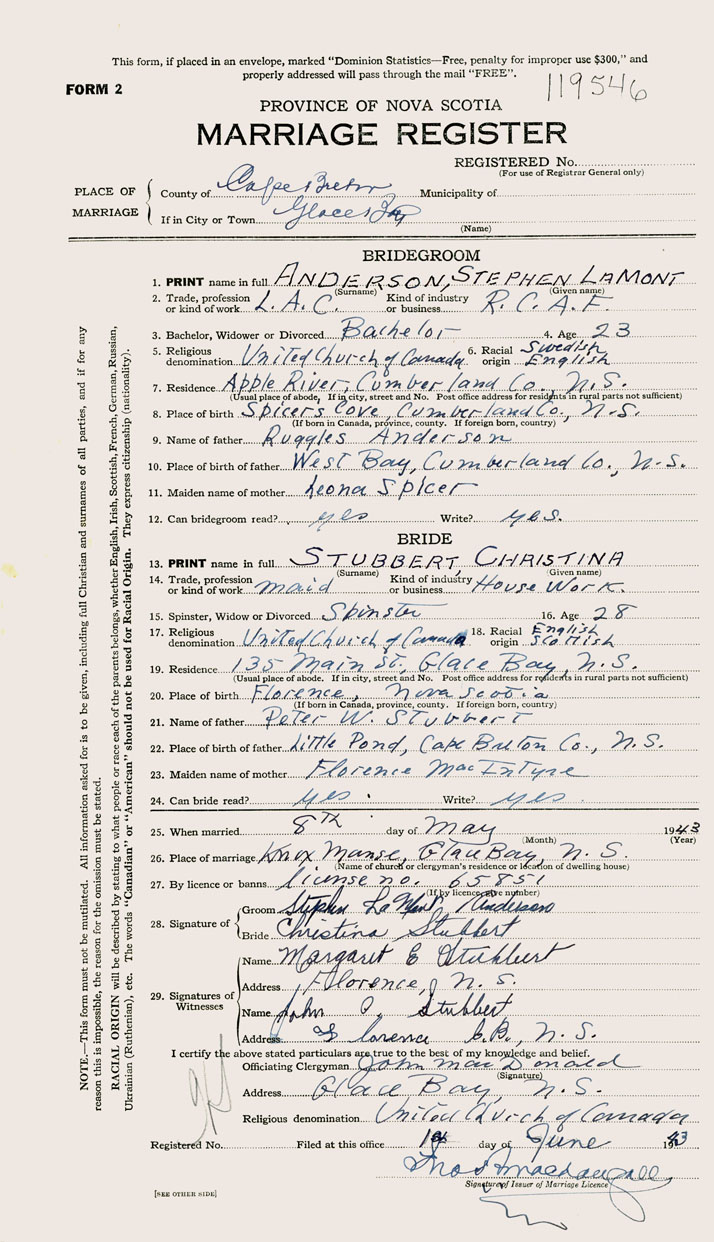 This form, if placed in an envelope, marked "Dominion Statistics—Free, penalty for improper use $300," and
properly addressed will pass through the mail "FREE".
FORM 2
119546
PROVINCE OF NOVA SCOTIA
MARRIAGE REGISTER
REGISTERED No.
(For use of Registrar General only)
PLACE OF MARRIAGE
County of Cape Breton Municipality of
If in City or Town Glace Bay
(Name)
BRIDEGROOM
1. PRINT name in full ANDERSON, STEPHEN LAMONT
(Surname) (Given name)
2. Trade, profession or kind of work L.A.C. Kind of industry or business R.C.A.F.
3. Bachelor, Widower or Divorced Bachelor 4. Age 23
5. Religious denomination United Church of Canada 6. Racial origin Swedish English
7. Residence Apple River, Cumberland Co., N.S.
(Usual place of abode, If in city, street and No. Post office address for residents in rural parts not sufficient)
8. Place of birth Spicers Cove, Cumberland Co., N.S.
(If born in Canada, province, county. If foreign born, country)
9. Name of father Ruggles Anderson
10. Place of birth of father West Bay, Cumberland Co., N.S.
11. Maiden name of mother Leona Spicer
12. Can bridegroom read? yes Write? yes.
BRIDE
13. PRINT name in full STUBBERT, CHRISTINA
(Surname) (Given name)
14. Trade, profession or kind of work maid Kind of industry or business House Work.
15. Spinster, Widow or Divorced Spinster 16. Age 28
17. Religious denomination United Church of Canada 18. Racial origin English Scottish
19. Residence 135 Main St., Glace Bay, N.S.
(Usual place of abode. If in city, street and No. Post office address for residents in rural parts not sufficient)
20. Place of birth Florence, Nova Scotia
(If born in Canada, province, county. If foreign born, country)
21. Name of father Peter W. Stubbert
22. Place of birth of father Little Pond, Cape Breton Co., N.S.
23. Maiden name of mother Florence MacIntyre
24. Can bride read? yes. Write? yes.
25. When married 8TH day of May 1943
(Month) (Year)
26. Place of marriage Knox Manse, Glace Bay, N.S.
(Name of church or clergyman's residence or location of dwelling house)
27. By licence or banns license no. 65851
(If by licence, give number)
28. Signature of
Groom Stephen LaMont Anderson
Bride Christina Stubbert
29. Signatures of Witnesses
Name Margaret E Stubbert
Address Florence, N.S.
Name John Stubbert
Address Florence C.B., N.S.
I certify the above stated particulars are true to the best of my knowledge and belief.
Officiating Clergyman John MacDonald
(Signature)
Address Glace Bay, N.S.
Religious denomination United Church of Canada
Registered No. Filed at this office 1st day of June 1943
Thos Macdougall
Signature of Issuer of Marriage Licence
[SEE OTHER SIDE]
NOTE.—This form must not be mutilated. All information asked for is to be given, including full Christian and surnames of all parties, and if for any
reason this is impossible, the reason for the omission must be stated.
RACIAL ORIGIN will be described by stating to what people or race each of the parents belongs, whether English, Irish, Scottish, French, German, Russian,
Ukrainian (Ruthenian), etc. The words "Canadian" or "American" should not be used for Racial Origin. They express citizenship (nationality).